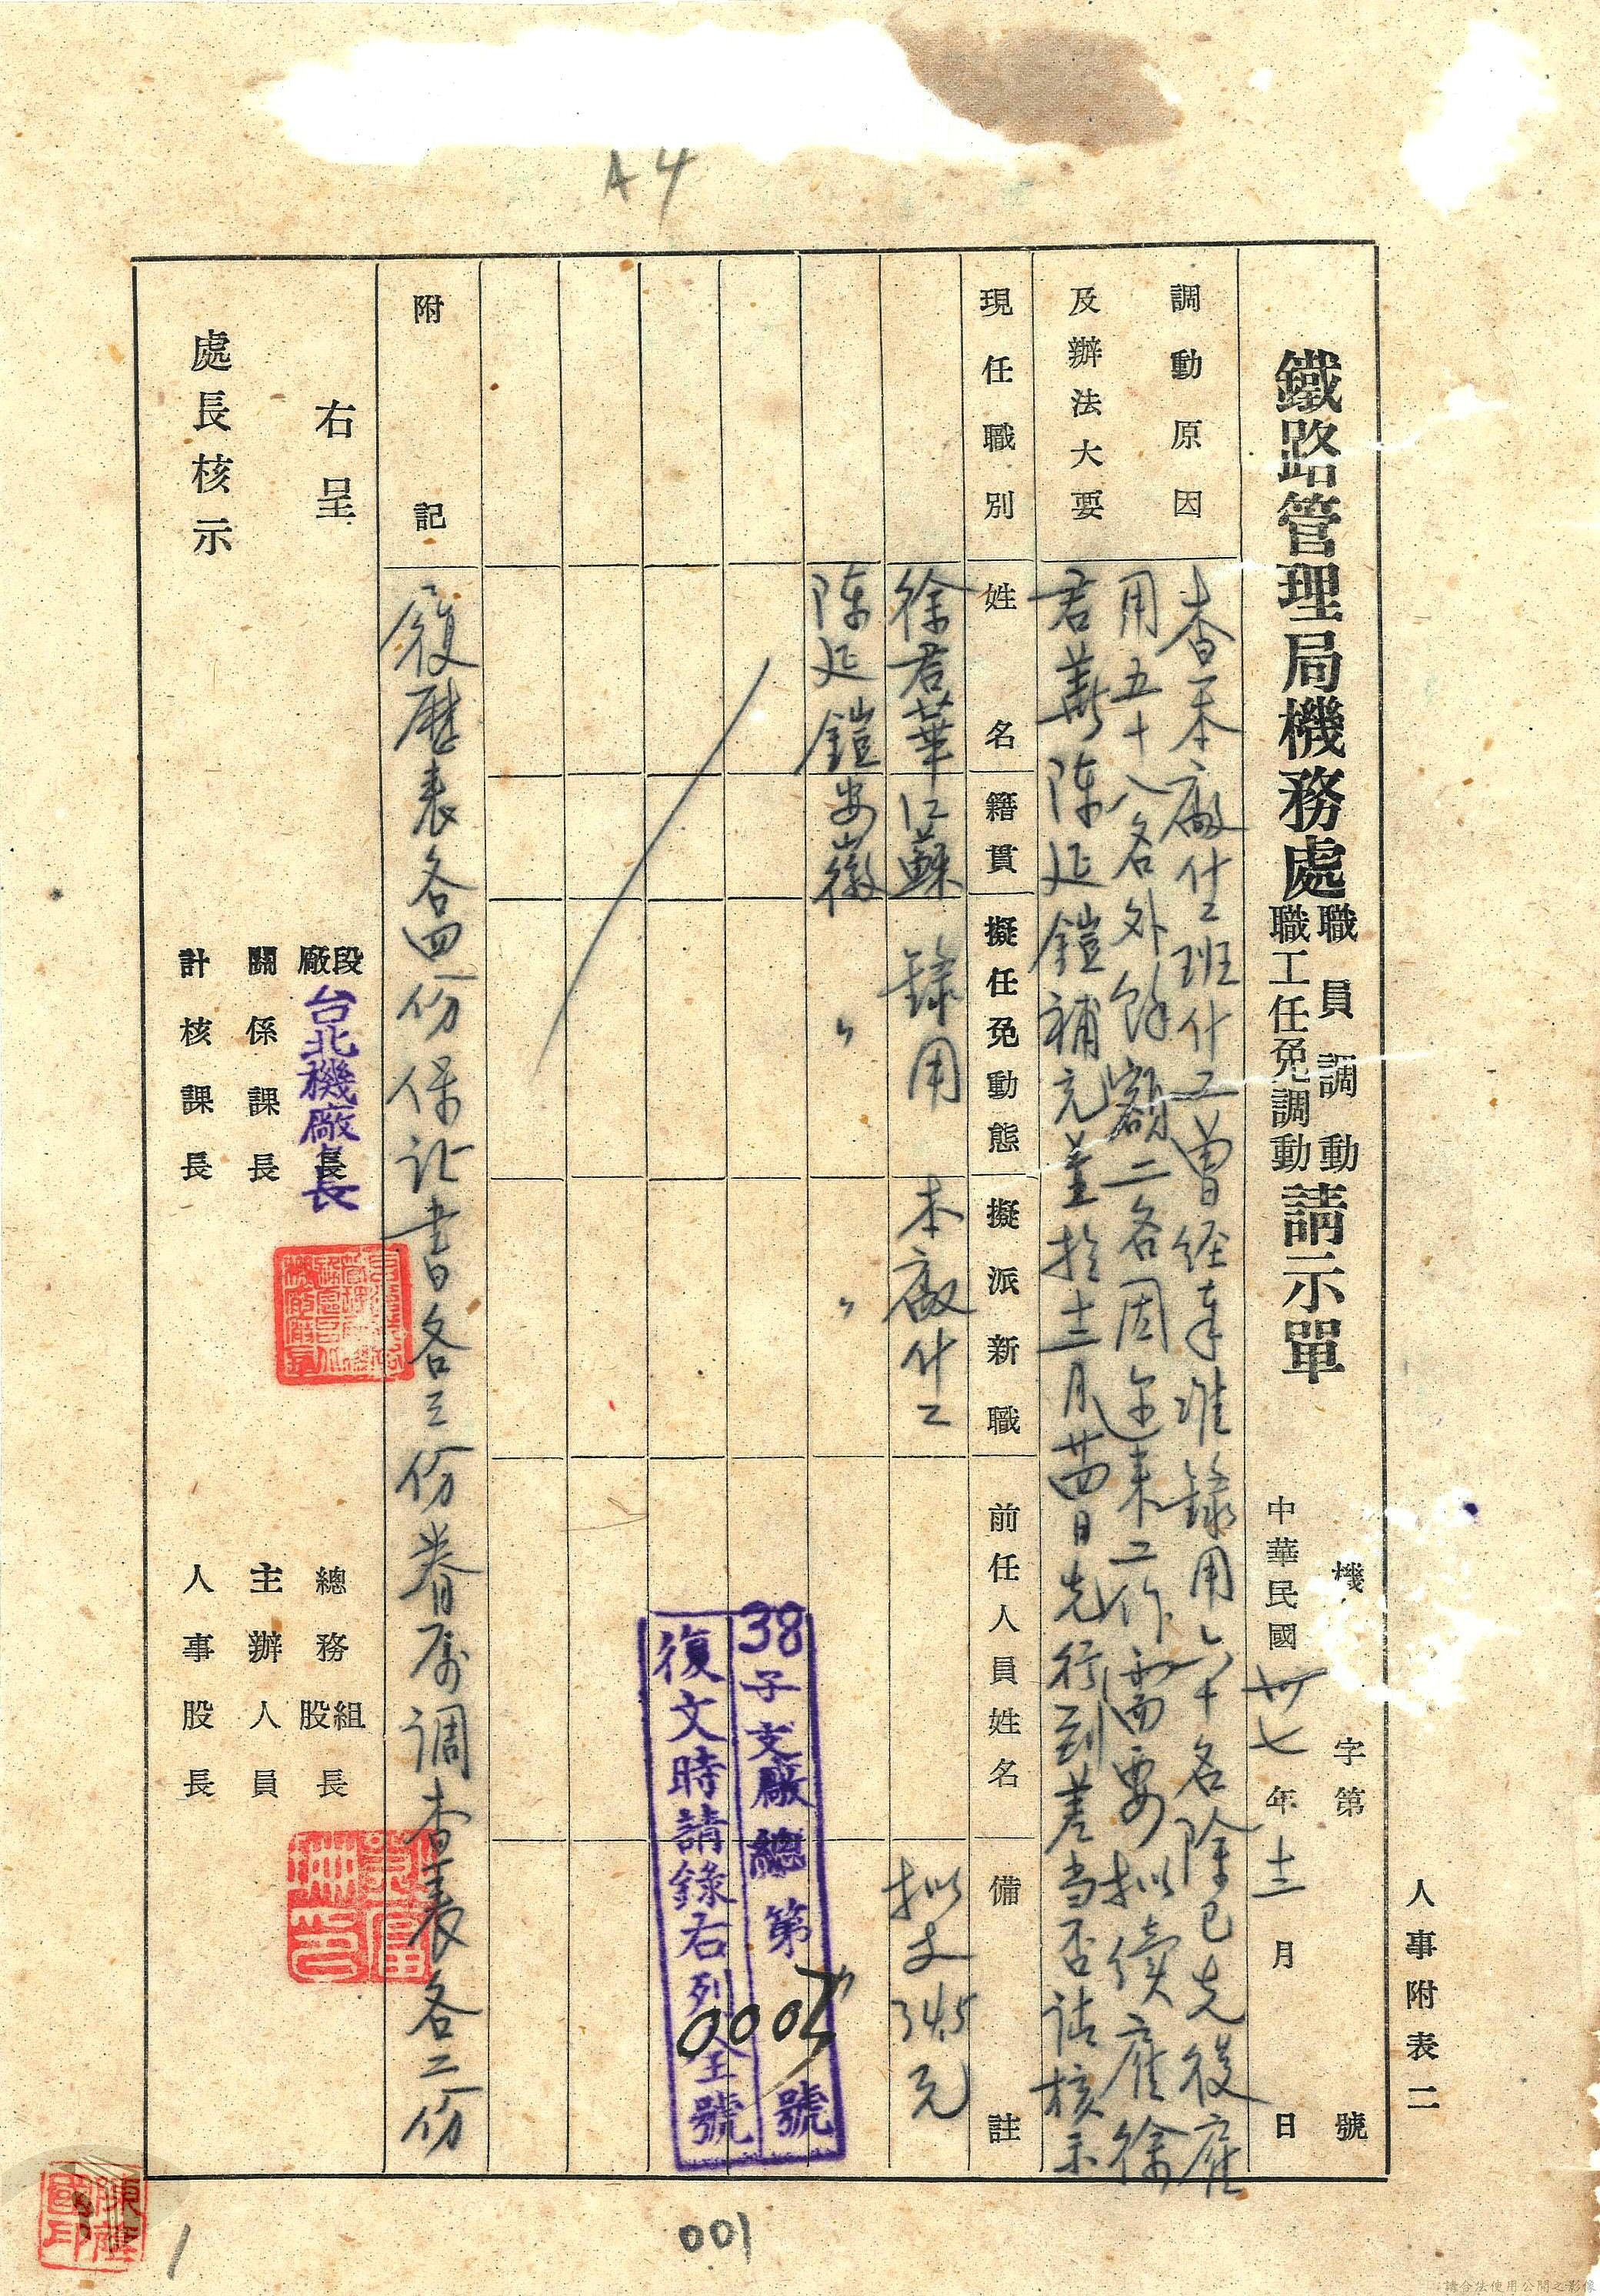 A4
人事附表二
機 字第 號
鐵路管理局機務處職員調動職工任免調動請示單
中華民國卅七年十二月 日
調動原因及辦法大要
查本廠什工班什工曾经奉准錄用六十名除已先後雇
用五十八名外餘額二名因近来工作需要拟續雇徐
君華陳延鎧補充並於十二月廿四日先行到差当否请核示
現任職別 姓名 籍貫 擬任免動態 擬派新職 前任人員姓名 備註
徐君華 江蘇 錄用 本廠什工 拟支34.5元
陈延鎧 安徽 〃 〃 〃
38子支廠總第 號
0005
復文時請錄右列全號
附記
履歷表各四份保证書各三份眷属调查表各二份
右呈
處長核示
段廠長
台北機廠長
總務組股長
關係課長
主辦人員
計核課長
人事股長
001
1
請合法使用公開之影像